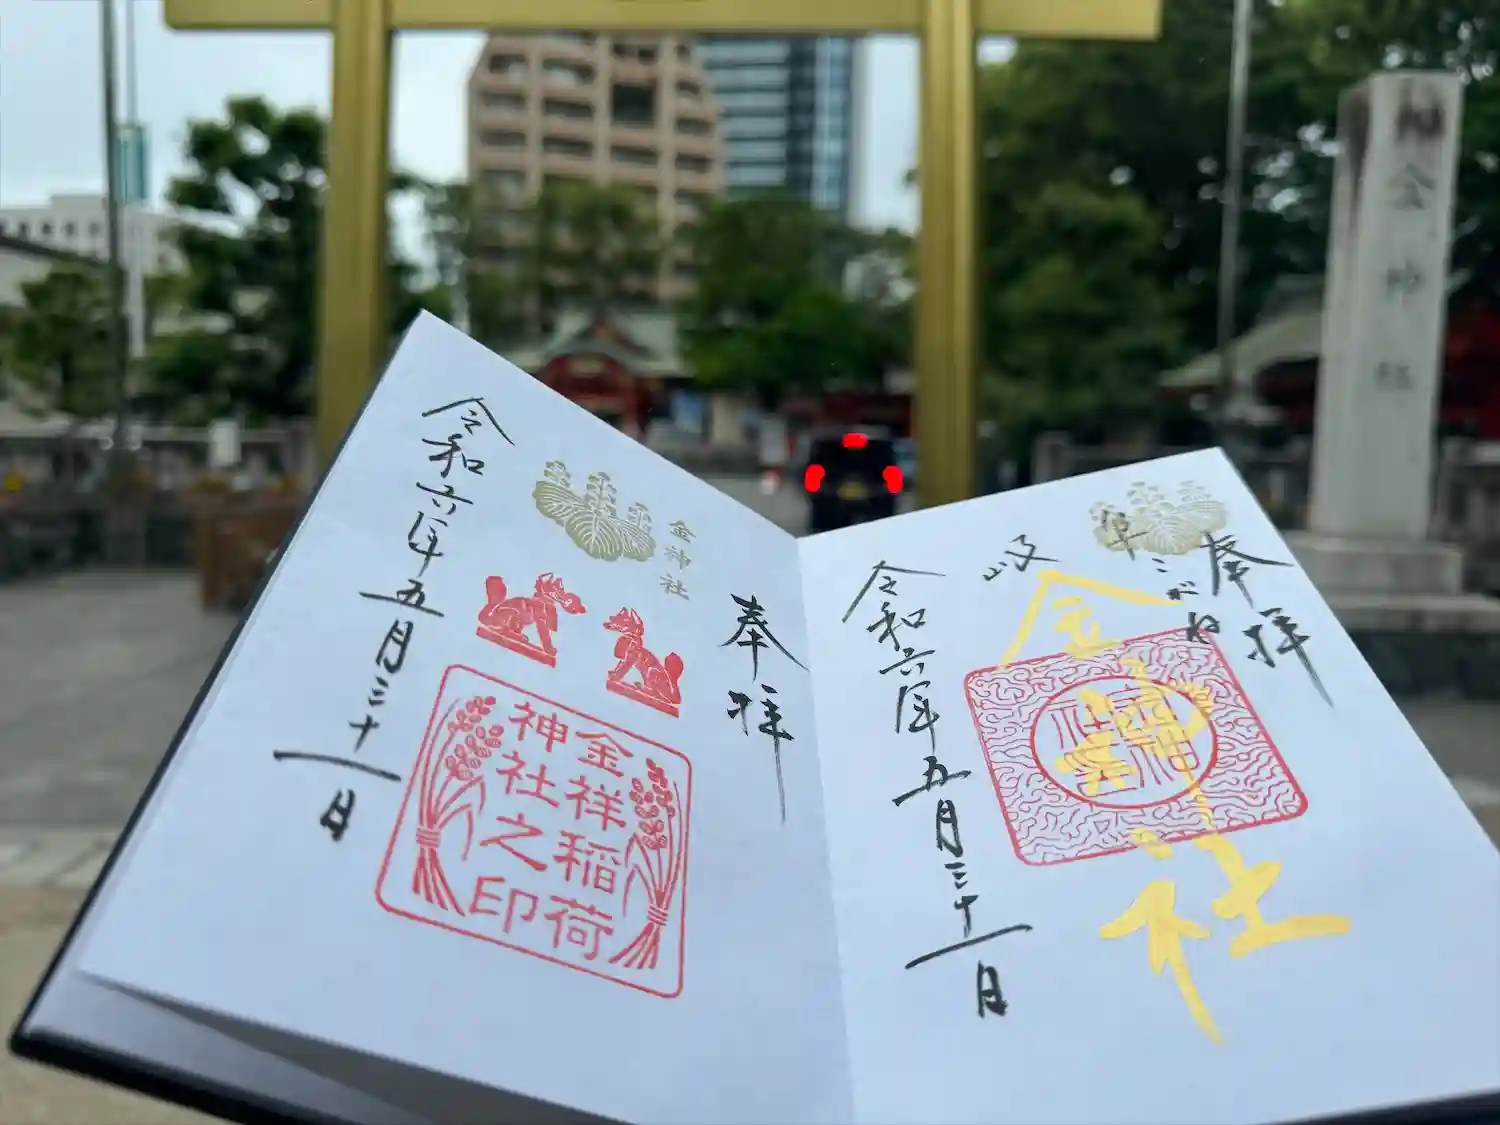 奉拝
金神社
金祥稲荷
神社之印
令和六年五月三十一日
奉拝
岐阜
こがね
金神社
令和六年五月三十一日
金神社